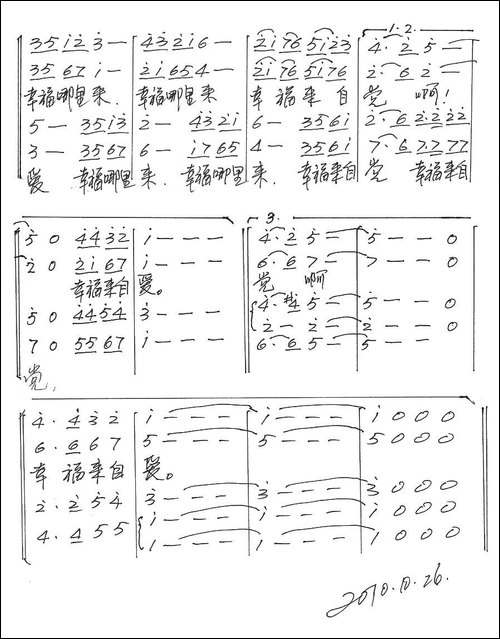 1.2.
3 5 i 2 3 — | 4 3 2 i 6 — | 2 i 7 6 5 i 2 3 | 4 · 2 5 — |
3 5 6 7 i — | 2 i 6 5 4 — | 2 i 7 6 5 i 7 6 | 2 · 6 2 — |
幸福哪里来. 幸福哪里来 幸 福 来 自 党 啊!
5 — 3 5 i 3 | 2 — 4 3 2 i | 6 — 3 5 6 i | 2 · 6 2 2 2 2 |
3 — 3 5 6 7 | 6 — i 7 6 5 | 4 — 3 5 6 i | 7 · 6 7 7 7 7 |
爱 幸福哪里来, 幸福哪里来, 幸福来自党 幸福来自
3.
5 0 4 4 3 2 | i — — — | 4 · 2 5 — | 5 — — 0
2 0 2 i 6 7 | i — — — | 6 · 6 7 — | 7 — — 0
幸福来自爱。 党 啊
5 0 4 4 5 4 | 3 — — — | 4 · #4 5 — | 5 — — 0
2 — 2 — | 2 — — 0
7 0 5 5 6 7 | i — — — | 6 · 6 5 — | 5 — —
党,
4 · 4 3 2 | i — — — | i — — — | i 0 0 0
6 · 6 6 7 | 5 — — — | 5 — — — | 5 0 0 0
幸 福来自 爱。
2 · 2 5 4 | 3 — — — | 3 — — — | 3 0 0 0
4 · 4 5 5 | i — — — | i — — — | i 0 0 0
1 — — — | 1 — — — | 1 0 0 0
2010.10.26.